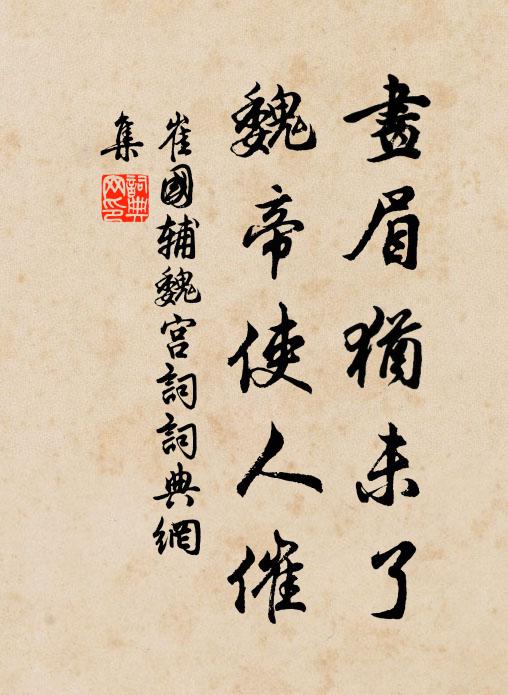 畫眉猶未了
魏帝使人催
崔國輔魏宮詞詞典網
集
詞典網印